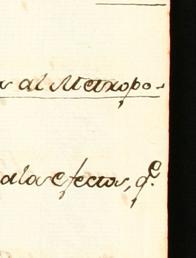 s al Metropo-
alos efectos, qe.